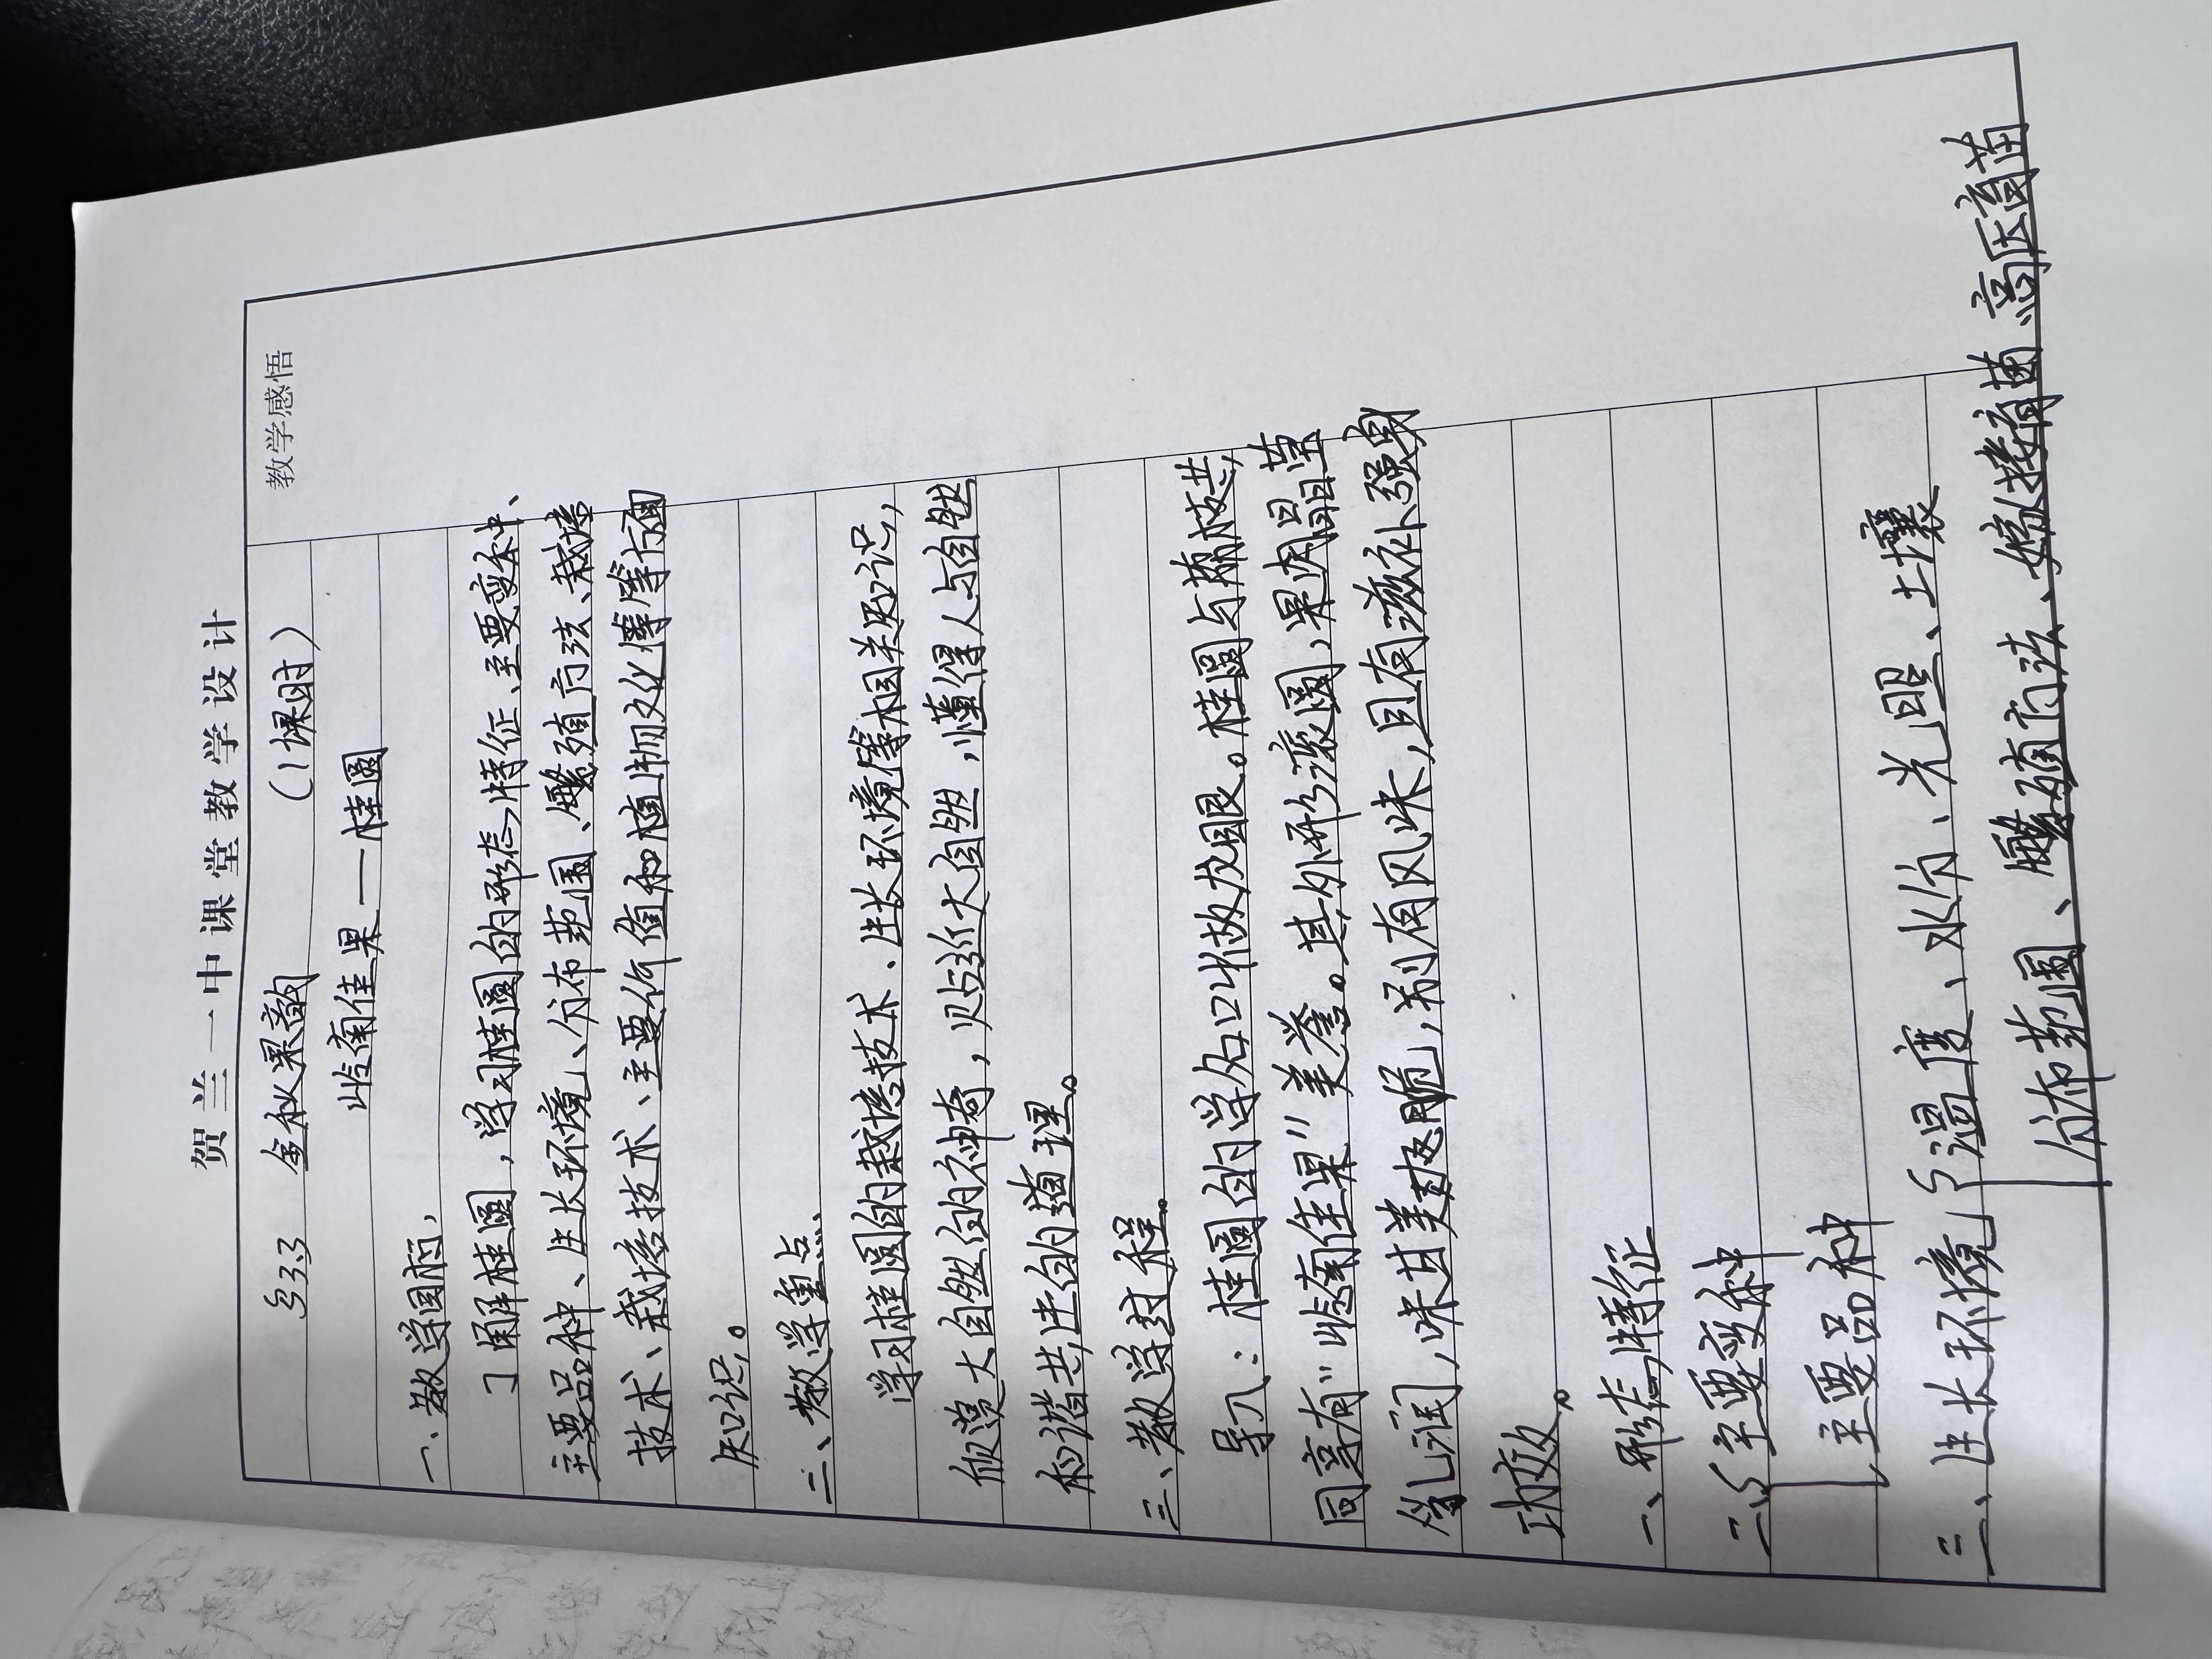 贺兰一中课堂教学设计
教学感悟
§33 金秋果韵 (1课时)
岭南佳果——桂圆
一、教学目标,
了解桂圆,学习桂圆的形态特征、主要变种、
主要品种、生长环境、分布范围、繁殖方法、栽培
技术、栽培技术、主要价值和植物文化等等方面
知识。
二、教学重点、
学习桂圆的栽培技术、生长环境等相关知识,
领蕴大自然的神奇,贴近大自然,懂得人与自然
和谐共生的道理。
三、教学过程。
导入:桂圆的学名叫做龙眼。桂圆与荔枝共,
同享有"岭南佳果"美誉。其外形滚圆,果肉晶莹
乳润,味甘美爽脆,别有风味,且有滋补强身
功效。
一、形态特征
二、{主要变种
主要品种
三、生长环境{温度、水分、光照、土壤
分布范围、繁殖方法、嫁接育苗、高压育苗